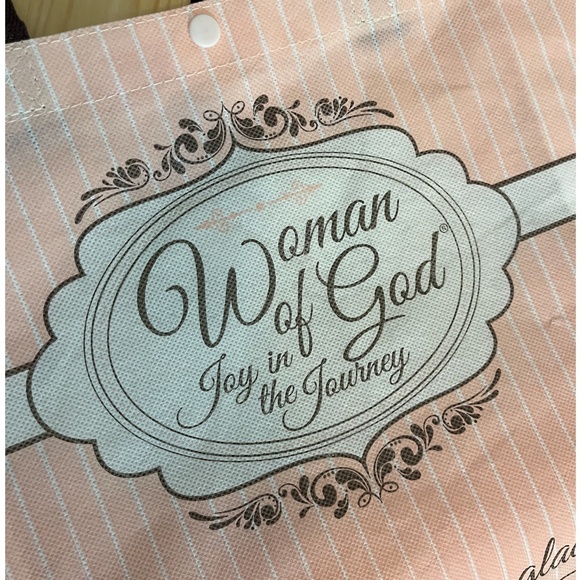 Woman
of God®
Joy in
the Journey